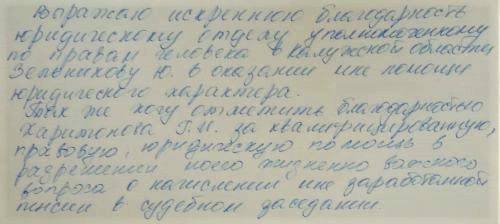 Выражаю искреннюю благодарность
юридическому отделу уполномоченному
по правам человека в Калужской области
Зельникову Ю. в оказании мне помощи
юридического характера.
Так же хочу отметить благодарностью
Харитонова Г.И. за квалифицированную,
правовую, юридическую помощь в
разрешении моего жизненно важного
вопроса о начислении мне заработанной
пенсии в судебном заседании.